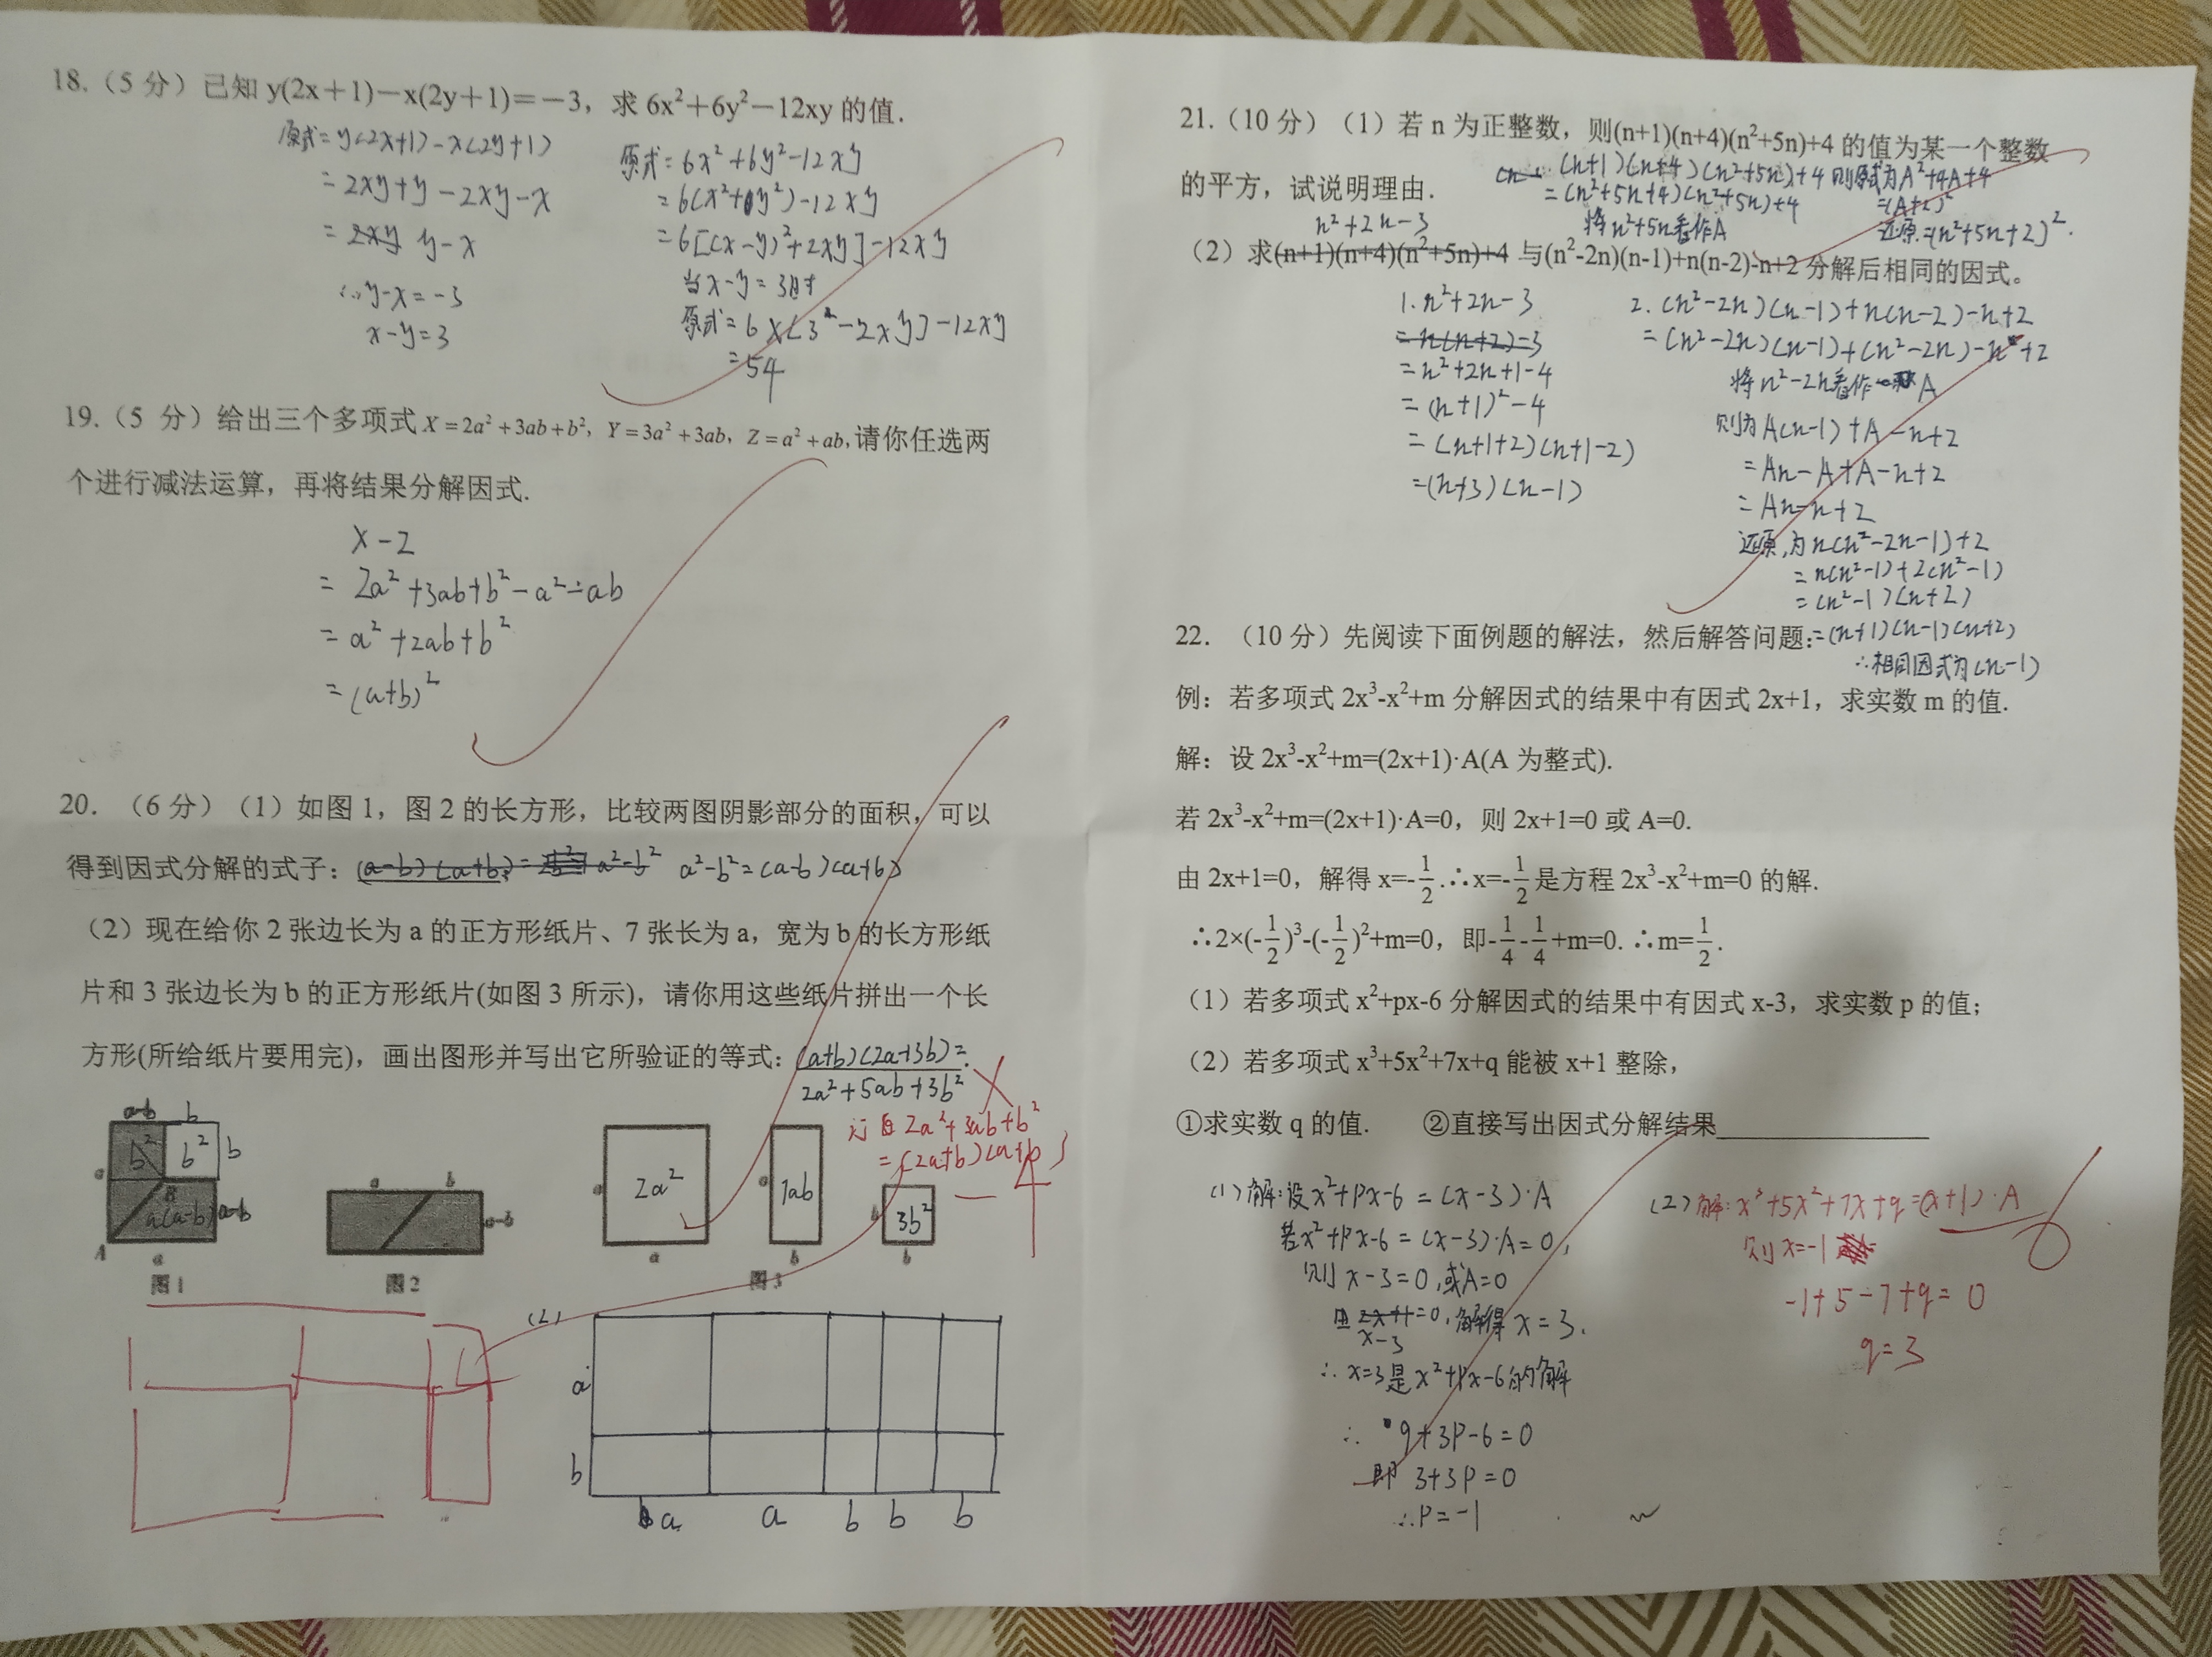 18.（5 分）已知 y(2x＋1)－x(2y＋1)＝－3，求 6x²＋6y²－12xy 的值.
原式= y(2x+1)-x(2y+1)
= 2xy+y-2xy-x
= 2xy y-x
∴y-x=-3
x-y=3
原式=6x²+6y²-12xy
=6(x²+y²)-12xy
=6[(x-y)²+2xy]-12xy
当x-y=3时
原式=6×[3²-2xy]-12xy
=54
19.（5 分）给出三个多项式 X=2a²+3ab+b²，Y=3a²+3ab，Z=a²+ab,请你任选两
个进行减法运算，再将结果分解因式.
X-Z
= 2a²+3ab+b²-a²-ab
= a²+2ab+b²
= (a+b)²
20.（6 分）（1）如图 1，图 2 的长方形，比较两图阴影部分的面积，可以
得到因式分解的式子：(a-b)(a+b)= a²-b² a²-b²=(a-b)(a+b)
（2）现在给你 2 张边长为 a 的正方形纸片、7 张长为 a，宽为 b 的长方形纸
片和 3 张边长为 b 的正方形纸片(如图 3 所示)，请你用这些纸片拼出一个长
方形(所给纸片要用完)，画出图形并写出它所验证的等式：(a+b)(2a+3b)=
2a²+5ab+3b²
2a²+3ab+b²
=(2a+b)(a+b)
-4
a-b b
a b² b² b
B
a(a-b) a-b
A a
图1
a b
a-b
图2
a 2a² a
a 7ab b
b 3b² b
图3
(2)
a
b
a a b b b
21.（10 分）（1）若 n 为正整数，则(n+1)(n+4)(n²+5n)+4 的值为某一个整数
的平方，试说明理由.
(n+1)(n+4)(n²+5n)+4 则原式为A²+4A+4
=(n²+5n+4)(n²+5n)+4 =(A+2)²
将n²+5n看作A 还原=(n²+5n+2)².
n²+2n-3
（2）求(n+1)(n+4)(n²+5n)+4 与(n²-2n)(n-1)+n(n-2)-n+2 分解后相同的因式。
1. n²+2n-3
= n(n+2)-3
= n²+2n+1-4
= (n+1)²-4
= (n+1+2)(n+1-2)
=(n+3)(n-1)
2. (n²-2n)(n-1)+n(n-2)-n+2
= (n²-2n)(n-1)+(n²-2n)-n+2
将n²-2n看作A
则为A(n-1)+A-n+2
= An-A+A-n+2
= An-n+2
还原,为n(n²-2n-1)+2
= n(n²-1)+2(n²-1)
= (n²-1)(n+2)
=(n+1)(n-1)(n+2)
∴相同因式为(n-1)
22.（10 分）先阅读下面例题的解法，然后解答问题：
例：若多项式 2x³-x²+m 分解因式的结果中有因式 2x+1，求实数 m 的值.
解：设 2x³-x²+m=(2x+1)·A(A 为整式).
若 2x³-x²+m=(2x+1)·A=0，则 2x+1=0 或 A=0.
由 2x+1=0，解得 x=-1/2.∴x=-1/2 是方程 2x³-x²+m=0 的解.
∴2×(-1/2)³-(-1/2)²+m=0，即-1/4-1/4+m=0. ∴m=1/2.
（1）若多项式 x²+px-6 分解因式的结果中有因式 x-3，求实数 p 的值；
（2）若多项式 x³+5x²+7x+q 能被 x+1 整除，
①求实数 q 的值. ②直接写出因式分解结果
(1)解:设x²+px-6=(x-3)·A
若x²+px-6=(x-3)·A=0,
则x-3=0,或A=0
由2x+1=0,解得x=3.
x-3
∴x=3是x²+px-6的解
∴ 9+3p-6=0
即 3+3p=0
∴p=-1
(2)解:x³+5x²+7x+q=(x+1)·A
则x=-1
-1+5-7+q=0
q=3